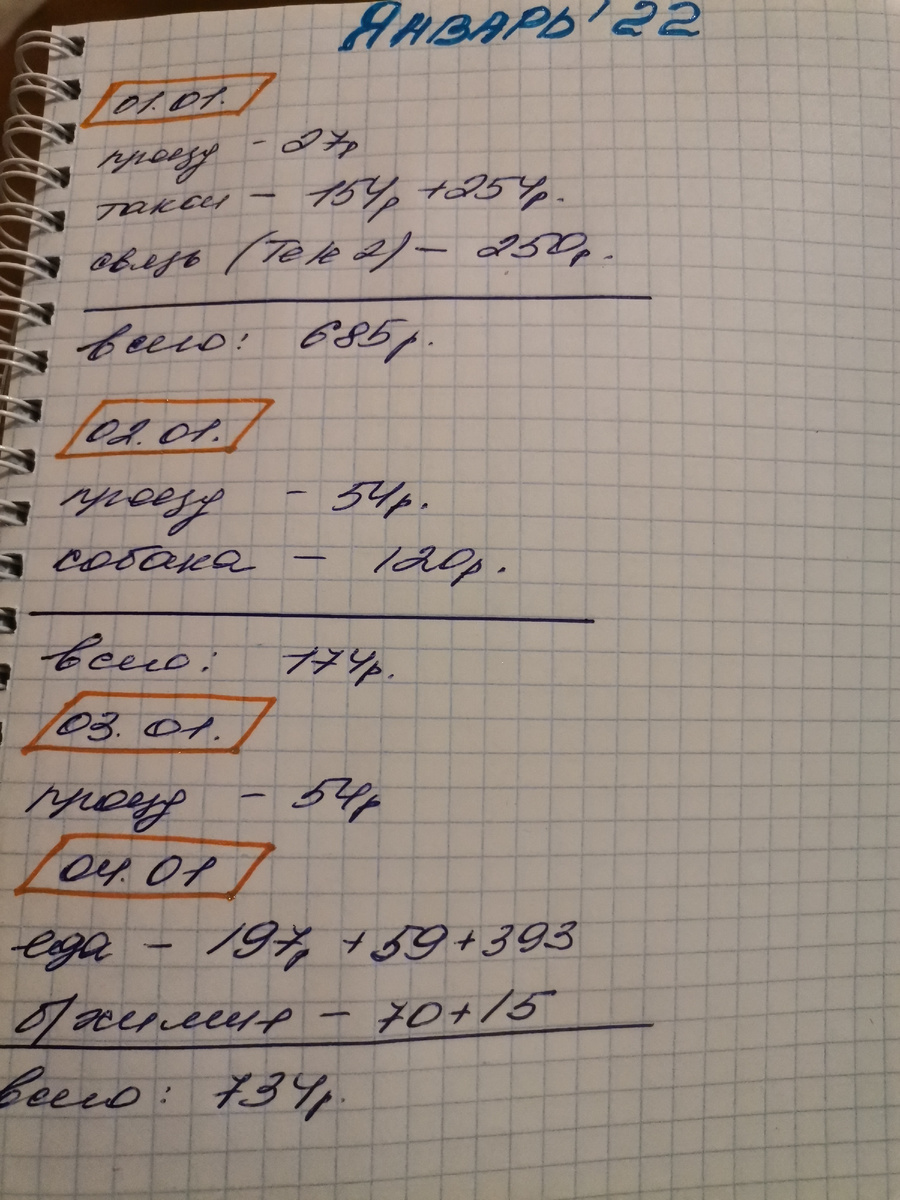 Январь '22
01.01.
проезд - 27р
такси - 154р + 254р.
связь (Теле 2) - 250р.
всего: 685р.
02.01.
проезд - 54р.
собака - 120р.
всего: 174р.
03.01.
проезд - 54р
04.01
еда - 197р + 59 + 393
б/химия - 70 + 15
всего: 734р.